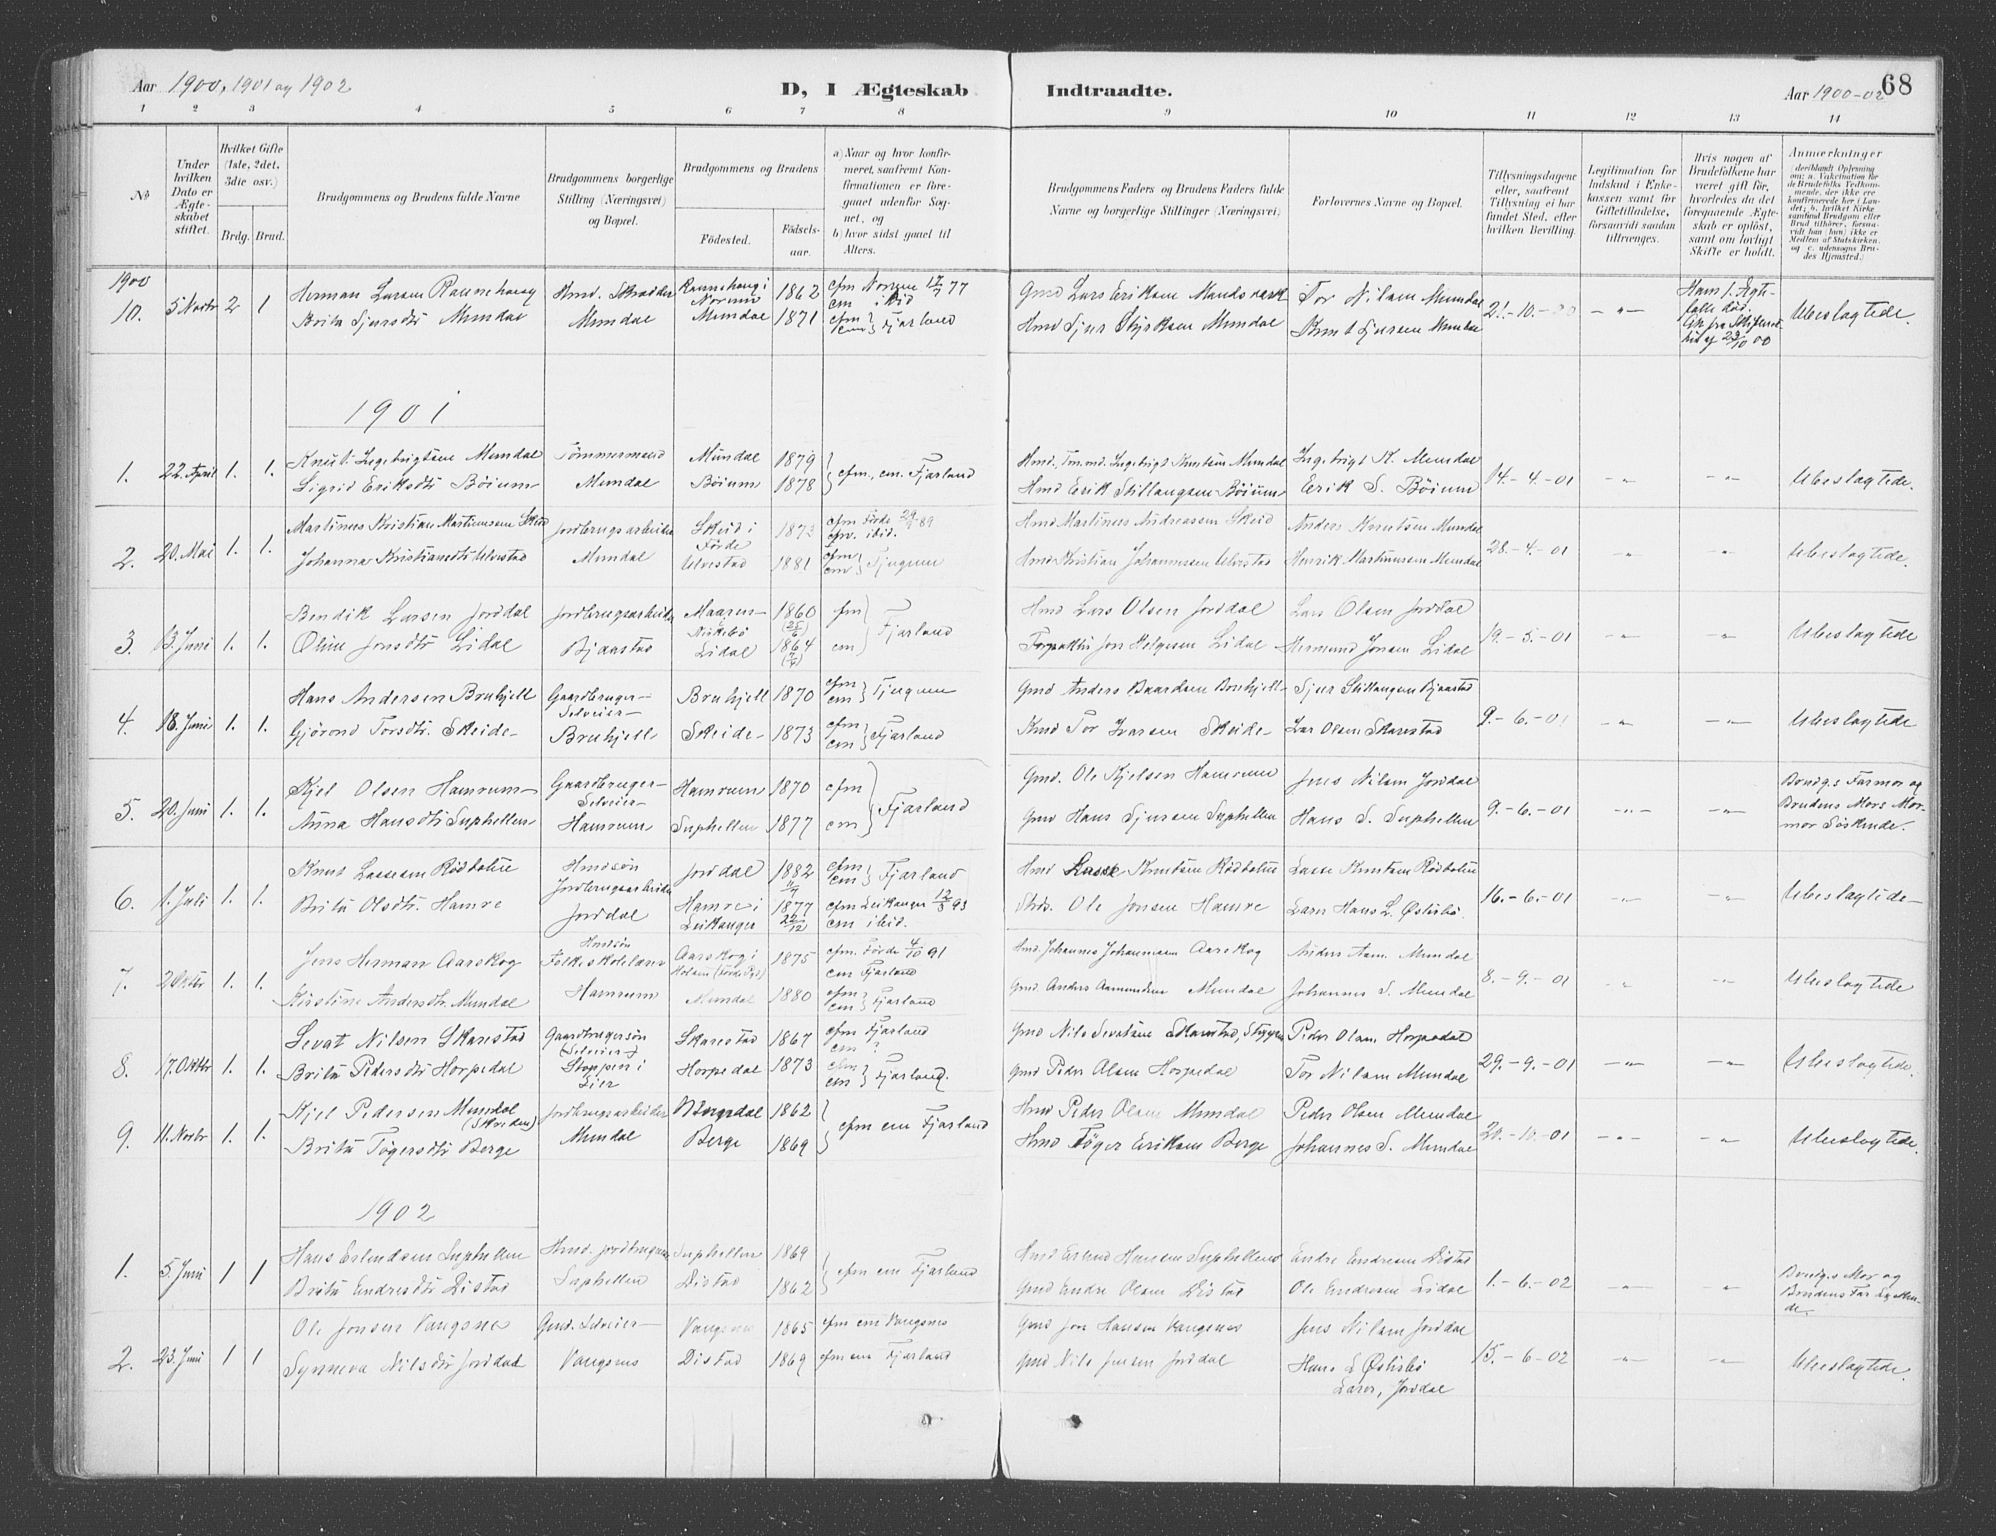 Aar 1900, 1901 og 1902
D, I Ægteskab
Indtraadte.
Aar 1900-02
68
1 2 3 4 5 6 7 8 9 10 11 12 13 14
No
Under hvilken Dato er Ægteskabet stiftet.
Hvilket Gifte (1ste, 2det, 3die osv.)
Brdg. Brud.
Brudgommens og Brudens fulde Navne
Brudgommens borgerlige Stilling (Næringsvei) og Bopæl.
Brudgommens og Brudens
Födested. Födselsaar.
a) Naar og hvor konfirmeret, saafremt Konfirmationen er foregaaet udenfor Sognet, og
b) hvor sidst gaaet til Alters.
Brudgommens Faders og Brudens Faders fulde Navne og borgerlige Stillinger (Næringsvei)
Forlovernes Navne og Bopæl.
Tillysningsdagene eller, saafremt Tillysning ei har fundet Sted, efter hvilken Bevilling.
Legitimation for Indskud i Enkekassen samt for Giftetilladelse, forsaavidt saadan tiltrænges.
Hvis nogen af Brudefolkene har været gift før, hvorledes da det foregaaende Ægteskab er oplöst, samt om lovligt Skifte er holdt.
Anmerkninger
1900
10. 5 Novbr 2 1
Herman Larsen Rannehaug
Brita Sjursdtr Mundal
Hmd. Skrædder
Mundal
Rannehaug i Norum 1862
Mundal 1871
cfm Norum 12/7 77
cm ibid
cfm cm } Fjærland
Gmd Lars Eriksen
Hmd Sjur Styrksen Mundal
Tor Nilsen Mundal
Knut Sjursen Mundal
21.-10.-00
Hans 1. Ægte-
fælle död.
Ubeslægtede.
1901
1. 22. April 1. 1.
Knut Ingebrigtsen Mundal
Sigrid Eriksdtr Böium
Tömmermand
Mundal
Mundal 1879
Böium 1878
cfm, cm. Fjærland
Hmd. Tmmd. Ingebrigt Knutsen Mundal
Hmd Erik Stillaugsen Böium
Ingebrigt K. Mundal
Erik S. Böium
14.-4.-01
Ubeslægtede.
2. 20. Mai 1. 1.
Martines Kristian Martinussen Skeid
Johanna Kristiansdtr Ulvestad
Jordbrugsarbeider
Mundal
Skeid i Förde 1873
Ulvestad 1881
cfm Förde 89
cm ibid.
cfm cm } Tjugum
Hmd Martines Andreassen Skeid
Hmd Kristian Johannessen Ulvestad
Anders Knutsen Mundal
Henrik Martinussen Mundal
28.-4.-01
Ubeslægtede.
3. 13. Juni 1. 1.
Bendik Larsen Jordal
Oline Jonsdtr Lidal
Jordbrugsarbeider
Bjaastad
Maaren- 1860
Lidal 1864
cfm cm } Fjærland
Hmd Lars Olsen Jordal
Forpakter Jon Helgesen Lidal
Lars Olsen Jordal
Hermund Jonsen Lidal
19.-5.-01
Ubeslægtede
4. 18. Juni 1. 1.
Hans Andersen Bruhjell
Gjörond Torsdtr. Skeide
Gaardbruger-
Selveier-
Bruhjell
Bruhjell 1870
Skeide 1873
cfm cm } Tjugum
cfm cm } Fjærland
Gmd Anders Baardsen Bruhjell
Kmd Tor Ivarsen Skeide
Sjur Stillaugsen Bjaastad
Lars Olsen Skarestad
9.-6.-01
Ubeslægtede
5. 20. Juni 1. 1.
Kjel Olsen Hamrum
Anna Hansdtr Suphellen
Gaardbruger-
Selveier-
Hamrum
Hamrum 1870
Suphellen 1877
cfm cm } Fjærland
Gmd. Ole Kjelsen Hamrum
Gmd Hans Sjursen Suphellen
Jens Nilsen Jordal
Hans S. Suphellen
9.-6.-01
Brudg.s Farmor og
Brudens Mors Mor-
mor Söskende.
6. 1. Juli 1. 1.
Knut Lassesen Rödbotten
Brita Olsdtr. Hamre
Hmdsön
Jordbrugsarbeider
Jordal
Jordal 1882
Hamre i Leikanger 1877 22/12
cfm cm } Fjærland
cfm Leikanger 12/3 93
cm ibid.
Hmd Lasse Knutsen Rödbotten
Ole Jonsen Hamre
Lasse Knutsen Rödbotten
Hans L. Österbö
16.-6.-01
Ubeslægtede
7. 2 Oktbr 1. 1.
Jens Herman Aarskog
Kirstine Andersdtr. Mundal
Hmdsön
Folkeskolelærer
Hamrum
Aarskog i 1875
Mundal 1880
cfm. Förde 4/10 91
cm Fjærland
cfm cm } Fjærland
Hmd. Johannes Johannesen Aarskog
Gmd Anders Aamundsen Mundal
Anders Aam. Mundal
Johannes S. Mundal
8.-9.-01
Ubeslægtede
8. 17. Oktbr 1. 1.
Sevat Nilsen Skarestad
Brita Pedersdtr Horpedal
Gaardbrugersön
(Selveier)
i Lier
Skarestad 1867
Horpedal 1873
cfm Fjærland
cm ?
cfm cm } Fjærland.
Gmd Nils Sevatsen Skarestad,
Gmd Peder Olsen Horpedal
Peder Olsen Horpedal
Tor Nilsen Mundal
29.-9.-01
Ubeslægtede.
9. 11. Novbr 1. 1.
Kjel Pedersen Mundal
(Skeiden)
Brita Tögersdtr Berge
Jordbrugsarbeider
Mundal
1862
Berge 1869
cfm cm Fjærland
Hmd Peder Olsen Mundal
Hmd Töger Eriksen Berge
Peder Olsen Mundal
Johannes S. Mundal
20.-10.-01
Ubeslægtede.
1902
1. 5. Juni 1 1
Hans Erlendsen Suphellen
Brita Endresdtr Distad
Hmd. Jordbruger
Suphellen
Suphellen 1869
Distad 1862
cfm cm Fjærland
Hmd Erlend Hansen Suphellen
Gmd Endre Olsen Distad
Endre Endresen Distad
Ole Endresen Lidal
1.-6.-02
Brudg.s Mor og
Brudens Far
2. 23. Juni 1 1
Ole Jonsen Vangsnes
Synneva Nilsdtr Jordal
Gmd. Selveier
Vangsnes
Vangsnes 1865
Distad 1869
cfm cm Vangsnes
cfm cm Fjærland
Gmd Jon Hansen Vangsnes
Gmd Nils Jensen Jordal
Jens Nilsen Jordal
Hans L Österbö
Lærer, Jordal
15.-6-02
Ubeslægtede.